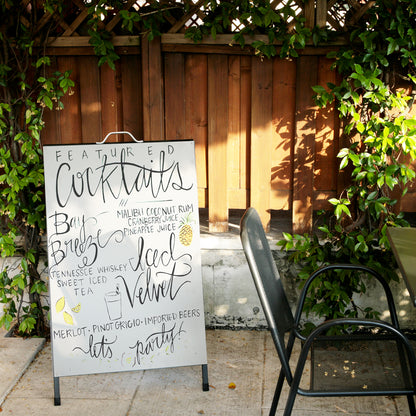 FEATURED
Cocktails
Bay Breeze
MALIBU COCONUT RUM
CRANBERRY JUICE
PINEAPPLE JUICE
Iced Velvet
TENNESSEE WHISKEY
SWEET ICED
TEA
MOSCATO • PINOT GRIGIO • IMPORTED BEERS
let's party!